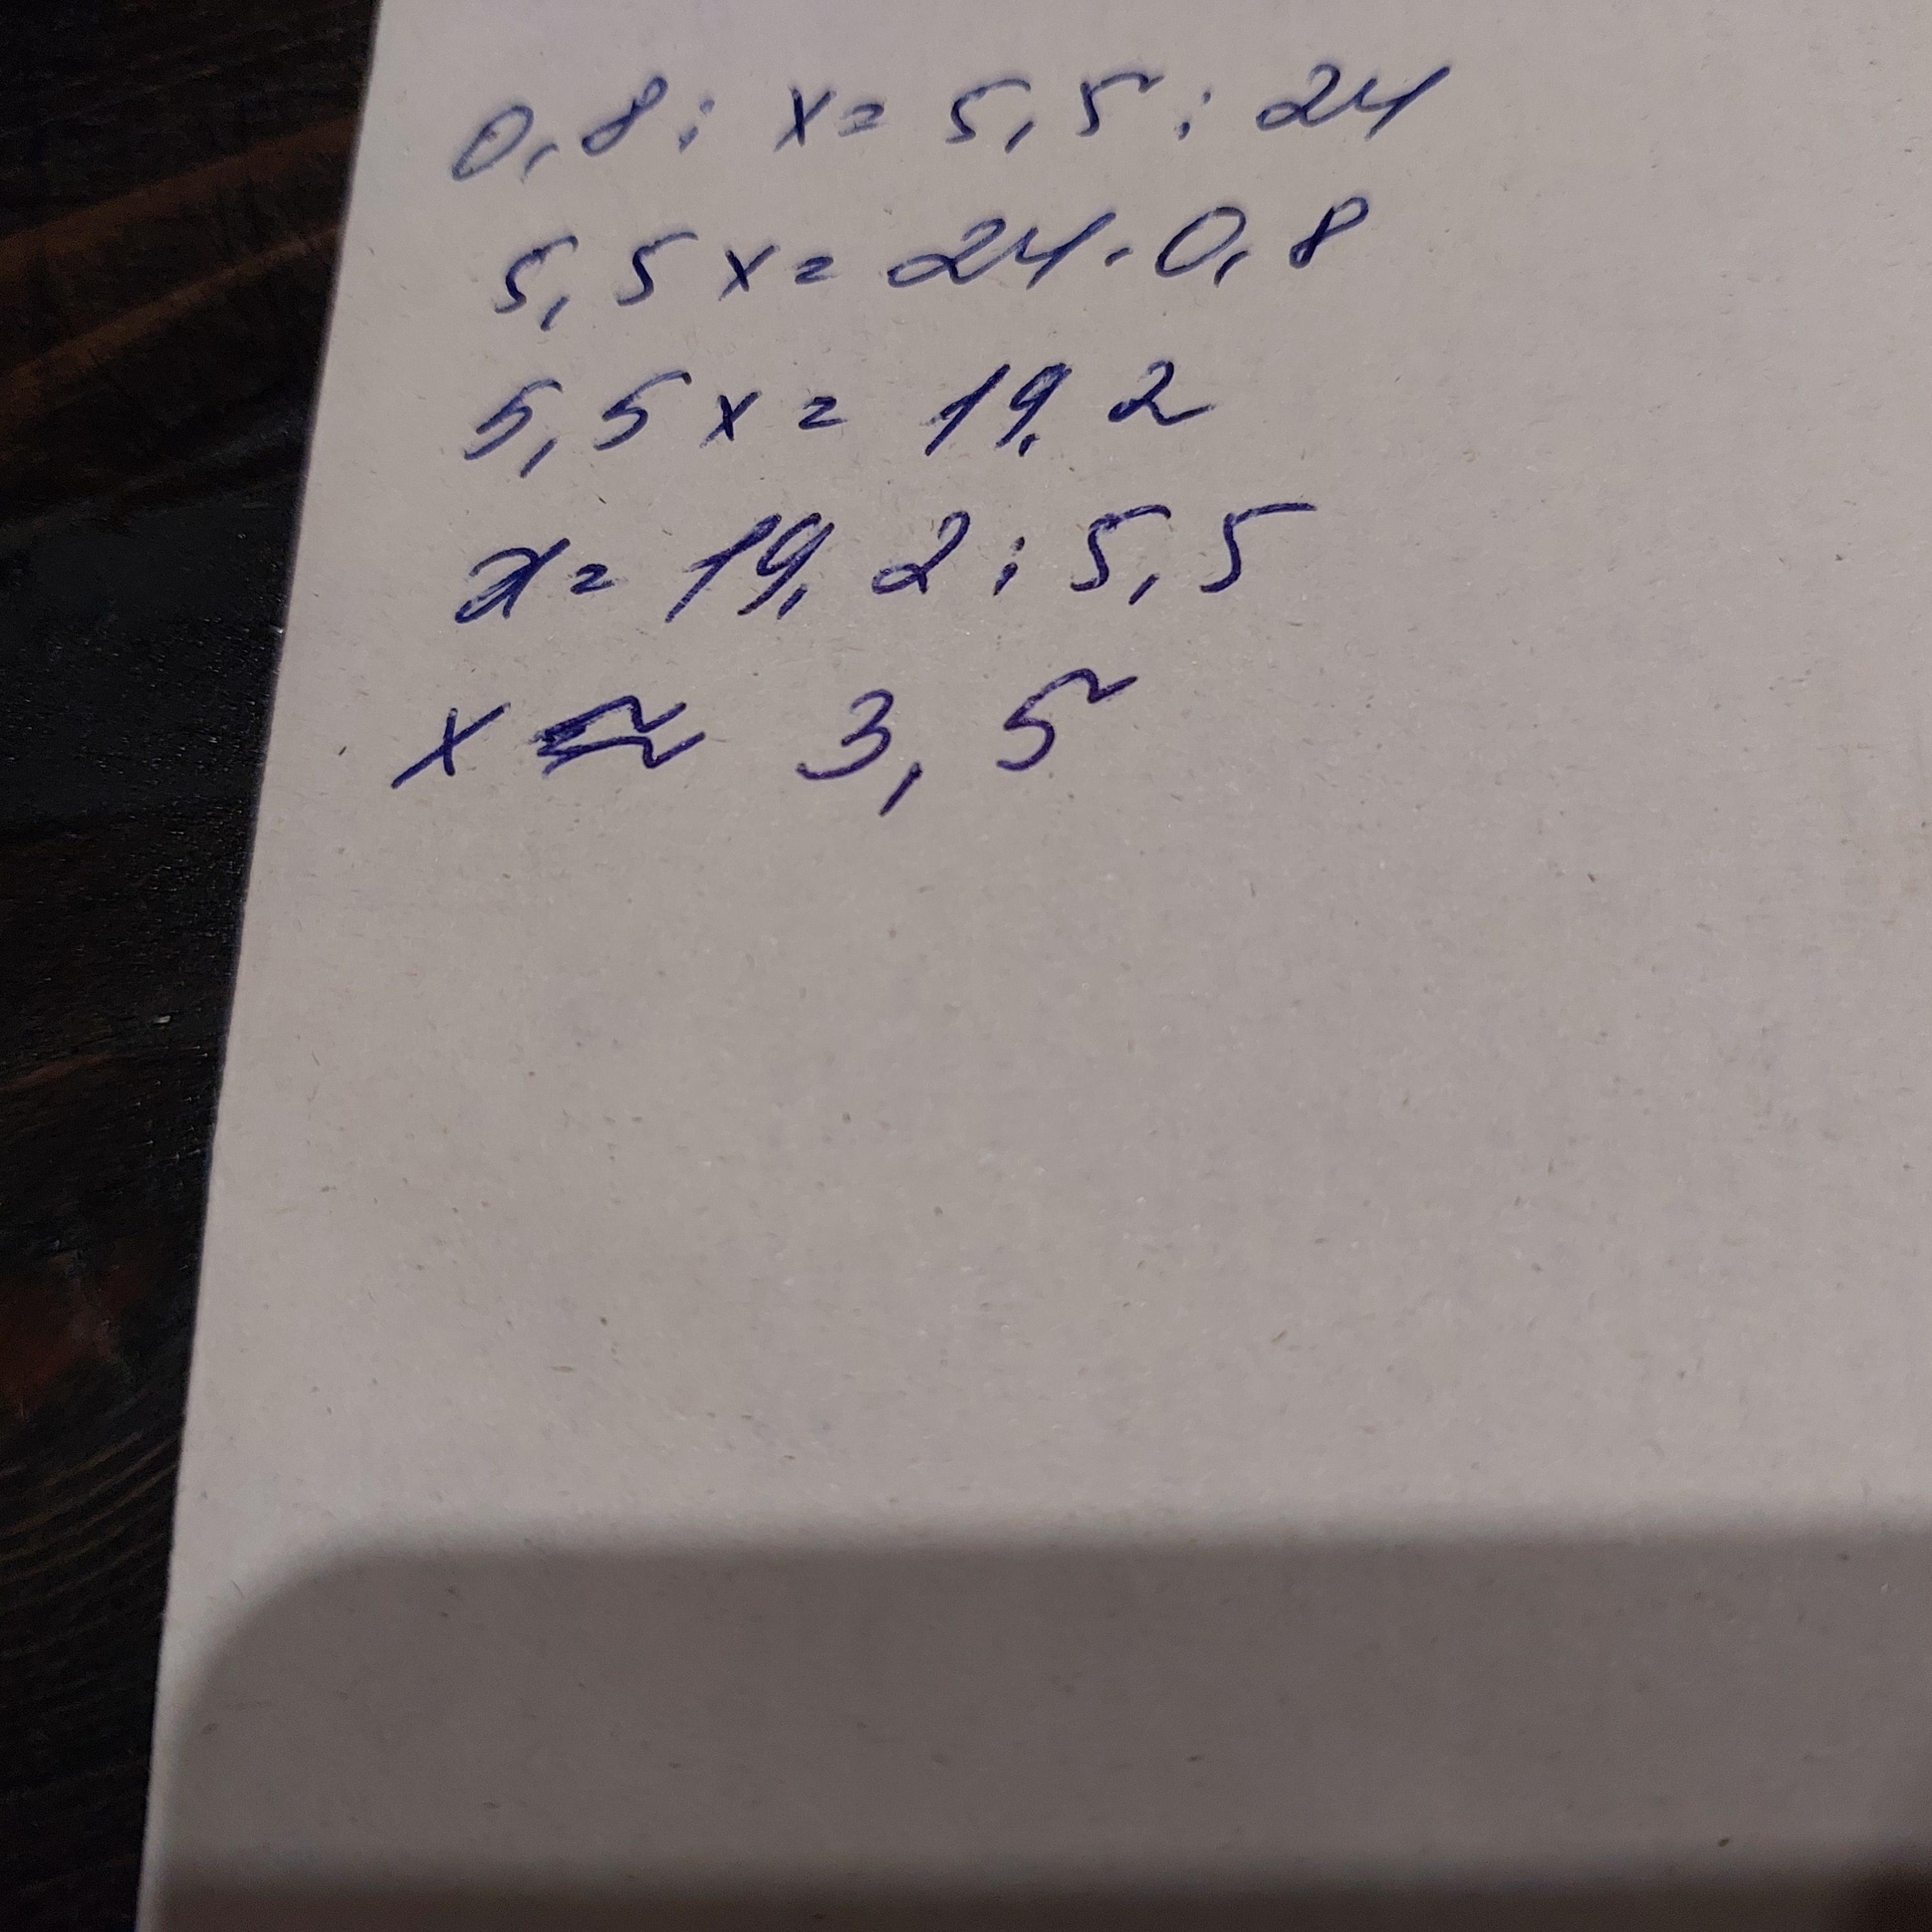 0,8 : x = 5,5 : 24
5,5x = 24 · 0,8
5,5x = 19,2
x = 19,2 : 5,5
x ≈ 3,5